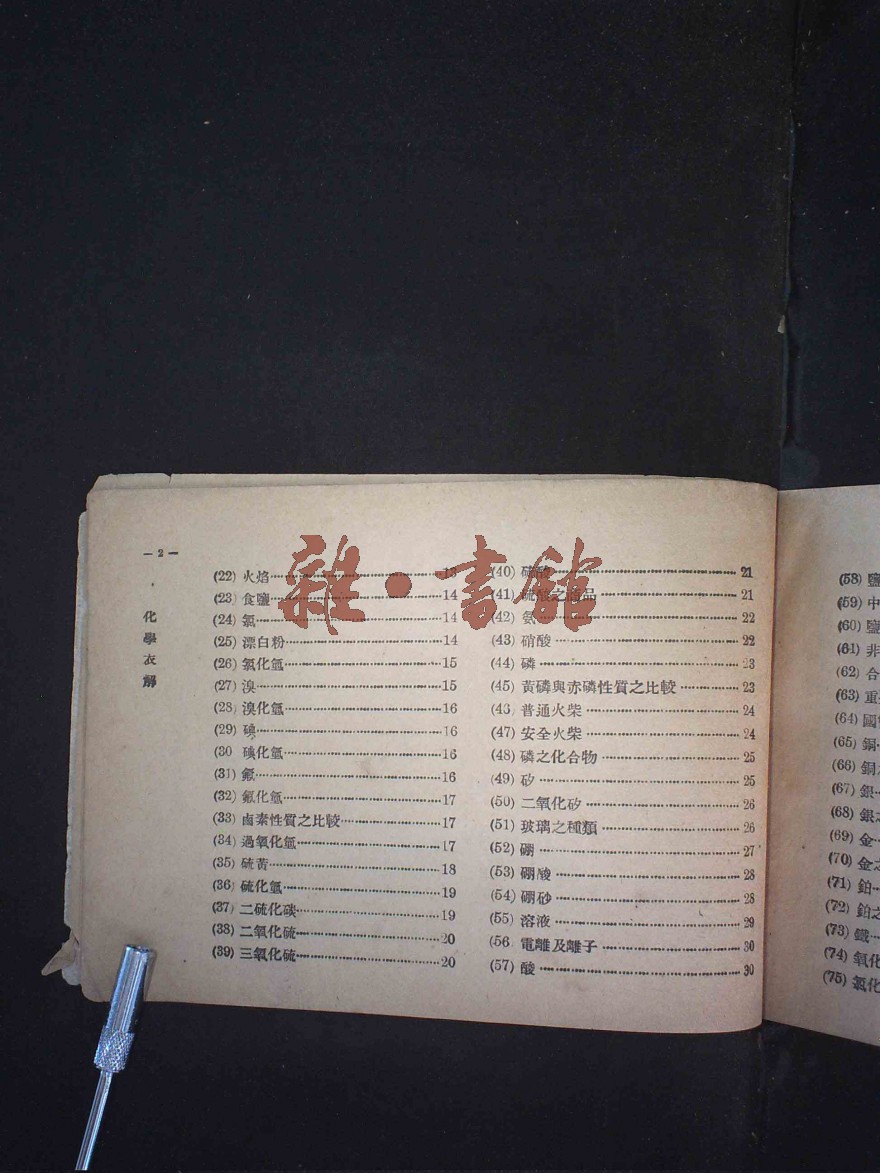 —2—
化學表解
(22) 火焰 13
(23) 食鹽 14
(24) 氯 14
(25) 漂白粉 14
(26) 氯化氫 15
(27) 溴 15
(28) 溴化氫 16
(29) 碘 16
(30 碘化氫 16
(31) 氟 16
(32) 氟化氫 17
(33) 鹵素性質之比較 17
(34) 過氧化氫 17
(35) 硫黃 18
(36) 硫化氫 19
(37) 二硫化碳 19
(38) 二氧化硫 20
(39) 三氧化硫 20
(40) 硫酸 21
(41) 硫酸之造品 21
(42) 氨 22
(43) 硝酸 22
(44) 磷 23
(45) 黃磷與赤磷性質之比較 23
(46) 普通火柴 24
(47) 安全火柴 24
(48) 磷之化合物 25
(49) 矽 25
(50) 二氧化矽 26
(51) 玻璃之種類 26
(52) 硼 27
(53) 硼酸 28
(54) 硼砂 28
(55) 溶液 29
(56 電離及離子 30
(57) 酸 30
(58) 鹽
(59) 中
(60) 鹽
(61) 非
(62) 合
(63) 重
(64) 國
(65) 銅
(66) 銅
(67) 銀
(68) 銀之
(69) 金
(70) 金之
(71) 鉑
(72) 鉑之
(73) 鐵
(74) 氧化
(75) 氯化
雜·書館